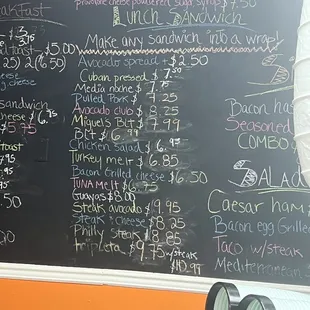 provolone cheese powdered sugar syrup $7.50
Lunch Sandwich
Make any sandwich into a wrap!
Avocado spread + $2.50
Cuban pressed $7.50
Media noche $7.75
Pulled Pork $ .25
Avocado club $8.25
Miguels BLT $7.99
BLT $6.99
Chicken Salad $6.95
Turkey melt $6.85
Bacon Grilled cheese $6.50
Tuna melt $6.75
Guayos $8.00
Steak avocado $9.95
Steak & cheese $8.25
Philly Steak $8.85
tripleta $9.75 w/steak
$10.99
eakfast
$5.00
2) (6.50
cheese
cheese
sandwich
cheese $6.95
$5.75
toast
.95
.50
Bacon ha
Seasoned
COMBO
Salad
Caesar ham
Bacon egg Grille
Taco w/steak
Mediterranean